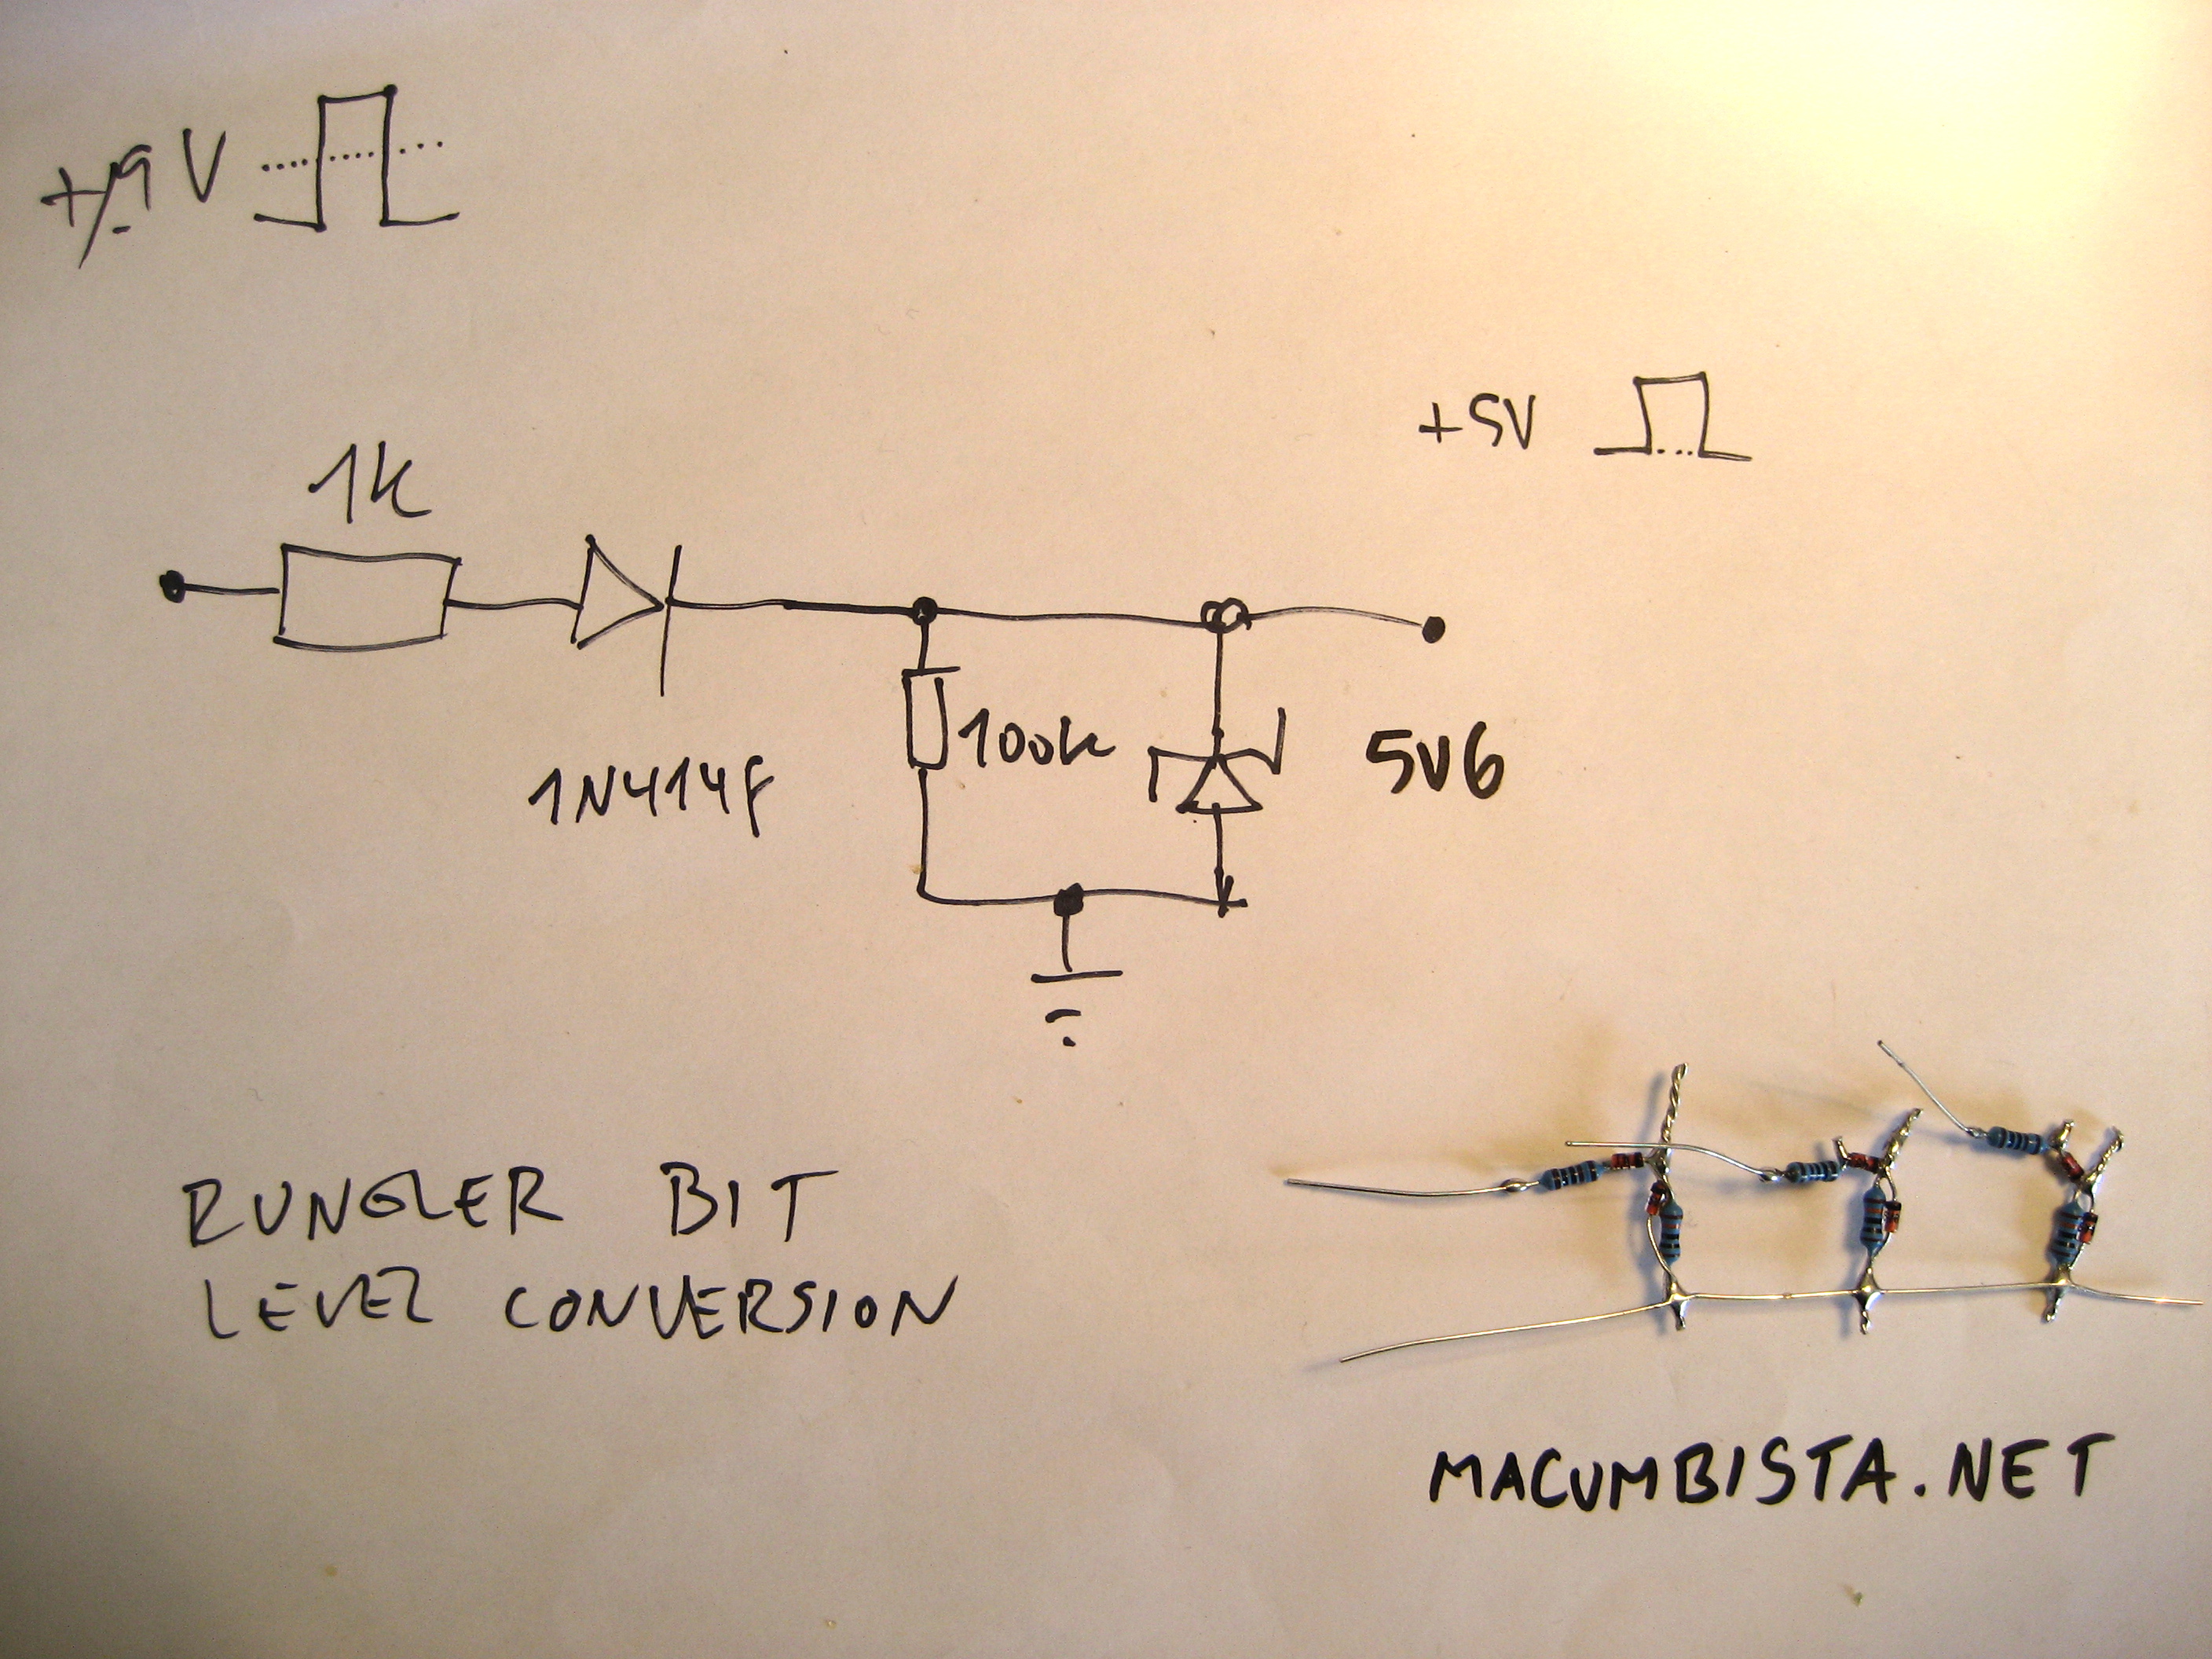 +/-9V
+5V
1K
1N4148
100k
5V6
RUNGLER BIT
LEVEL CONVERSION
MACUMBISTA.NET